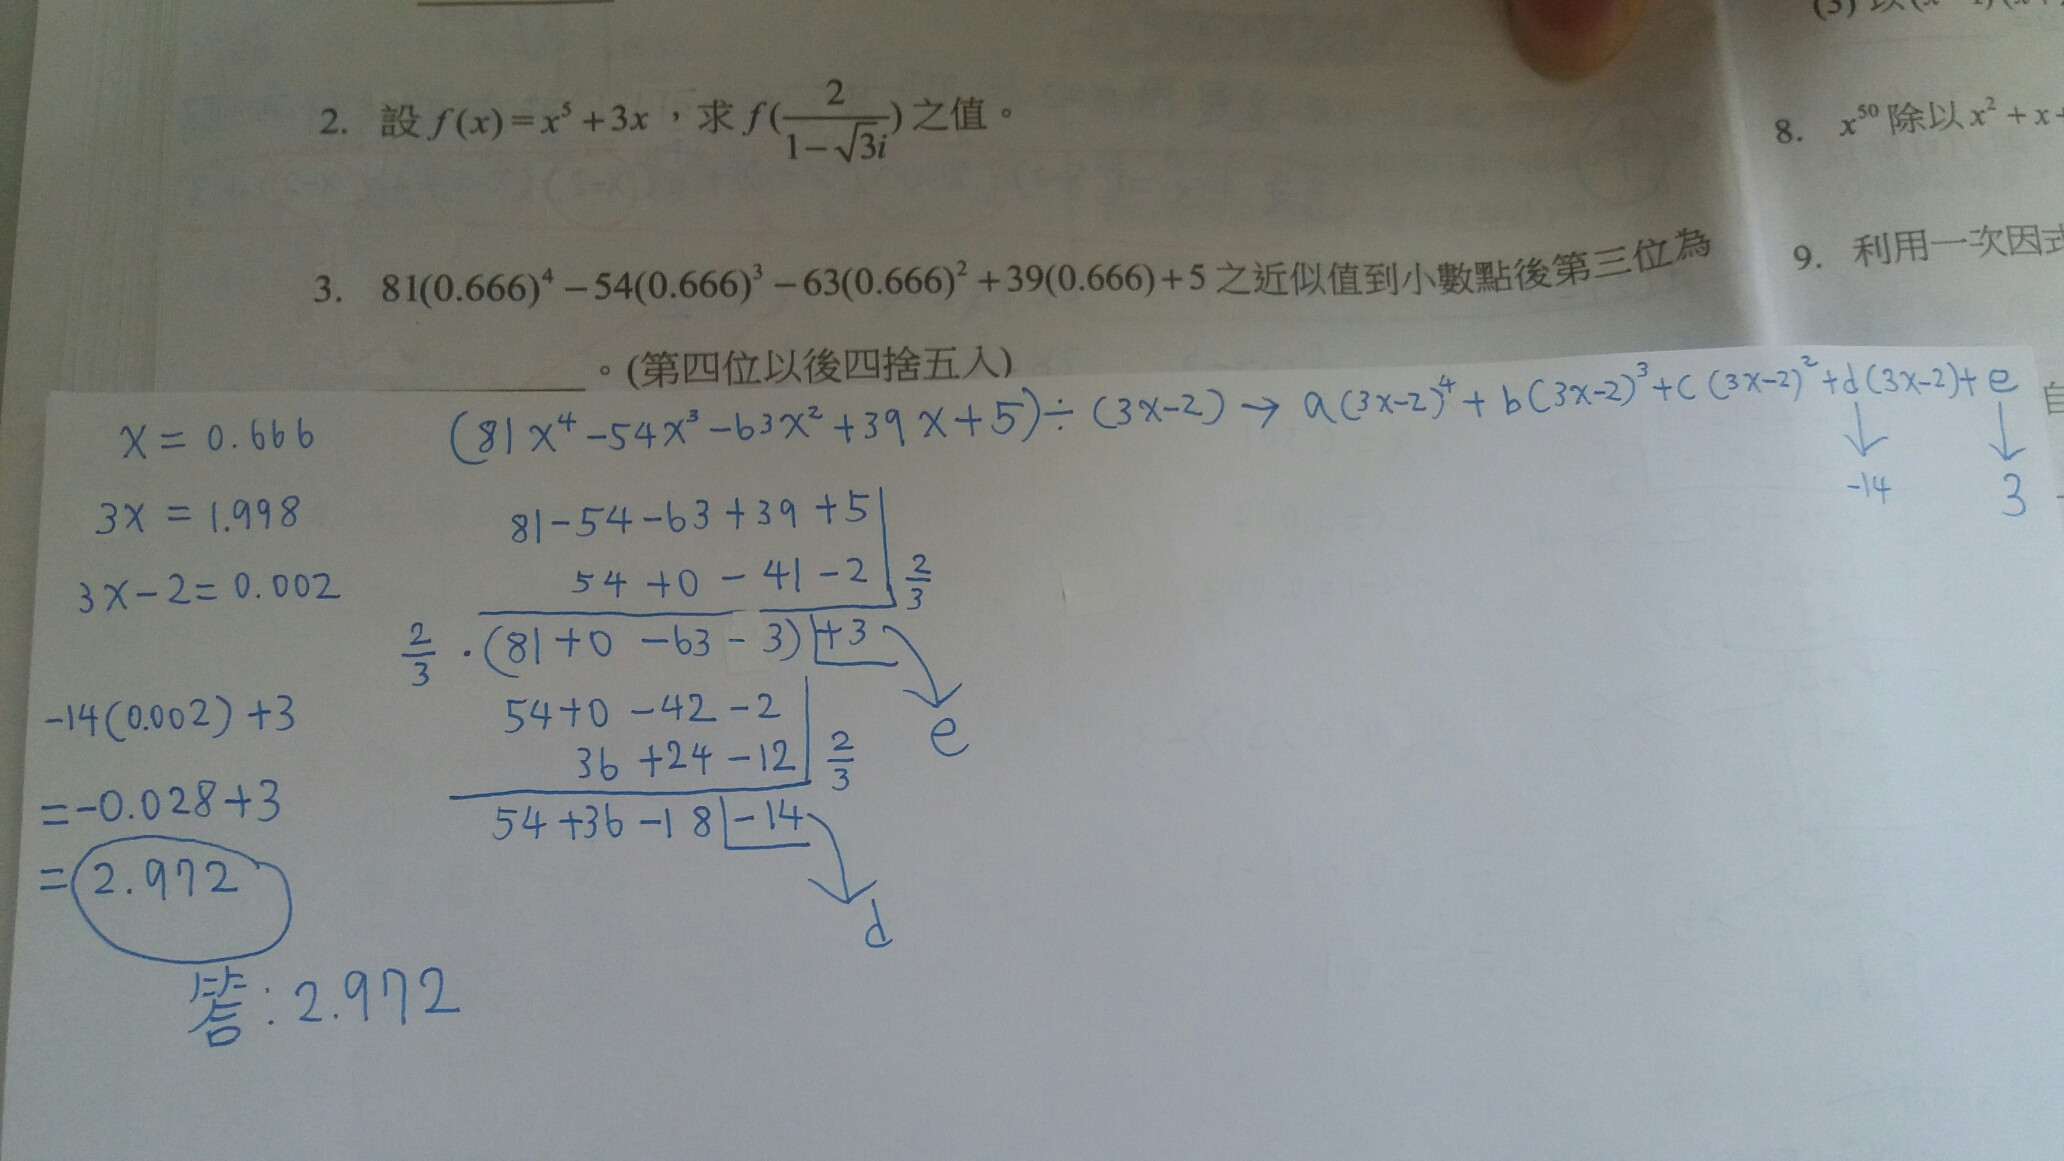 (3) 以(x
2. 設 f(x)=x⁵+3x，求 f(2/(1−√3i)) 之值。
3. 81(0.666)⁴−54(0.666)³−63(0.666)²+39(0.666)+5 之近似值到小數點後第三位為
。(第四位以後四捨五入)
8. x⁵⁰ 除以 x²+x+
9. 利用一次因式
自
x = 0.666
3x = 1.998
3x-2 = 0.002
-14(0.002)+3
= -0.028+3
= 2.972
答: 2.972
(81x⁴-54x³-63x²+39x+5)÷(3x-2) → a(3x-2)⁴+b(3x-2)³+c(3x-2)²+d(3x-2)+e
-14 3
81-54-63+39+5
54+0-41-2 | 2/3
2/3 · (81+0-63-3) +3
e
54+0-42-2
36+24-12 | 2/3
54+36-18 -14
d